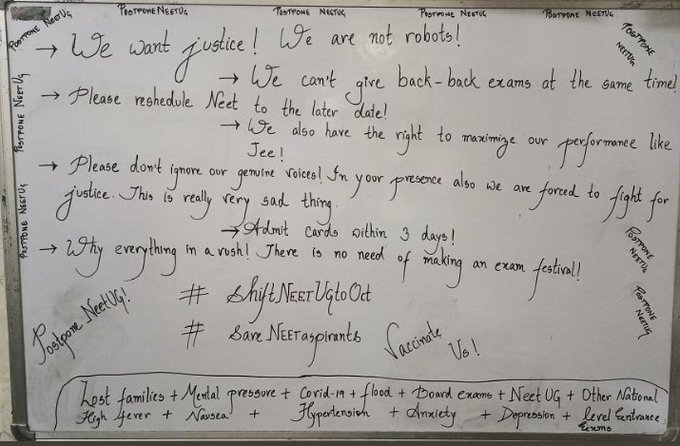 Postpone NeetUG Postpone NeetUG Postpone NeetUG Postpone NeetUG Postpone NeetUG
Postpone NeetUG
→ We want justice! We are not robots!
→ We can't give back-back exams at the same time!
→ Please reshedule Neet to the later date!
→ We also have the right to maximize our performance like
Jee!
→ Please don't ignore our genuine voices! In your presence also we are forced to fight for
justice. This is really very sad thing.
→ Admit cards within 3 days!
→ Why everything in a rush! There is no need of making an exam festival!
Postpone NeetUG
Postpone NeetUG
Postpone NeetUG
Postpone NeetUG
# ShiftNEETUgtoOct
# SaveNEETaspirants
Postpone NeetUG!
Vaccinate Us!
Lost families + Mental pressure + Covid-19 + flood + Board exams + Neet UG + Other National
High fever + Nausea + Hypertension + Anxiety + Depression + level Entrance
Exams